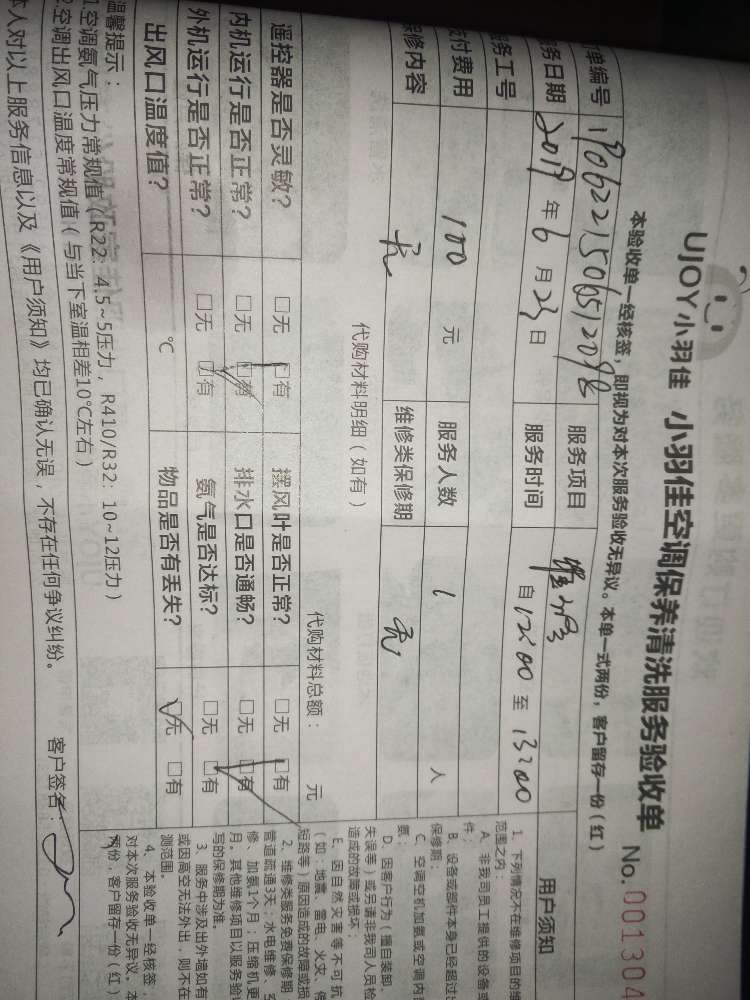 UJOY小羽佳 小羽佳空调保养清洗服务验收单
No. 001304
本验收单一经核签，即视为对本次服务验收无异议。本单一式两份，客户留存一份（红）
单编号 服务项目
务日期 2019 年 6 月 23 日 服务时间 自 12:00 至 13:00
务工号
付费用 100 元 服务人数 1 人
保修内容 无 维修类保修期 无
代购材料明细（如有） 代购材料总额： 元
遥控器是否灵敏？ □无 □有 摆风叶是否正常？ □无 □有
内机运行是否正常？ □无 □有 排水口是否通畅？ □无 □有
外机运行是否正常？ □无 □有 氨气是否达标？ □无 □有
出风口温度值？ ℃ 物品是否有丢失？ □无 □有
温馨提示：
1.空调氨气压力常规值（R22：4.5~5压力，R410/R32：10~12压力）
2.空调出风口温度常规值（与当下室温相差10℃左右）
本人对以上服务信息以及《用户须知》均已确认无误，不存在任何争议纠纷。 客户签名：
用户须知
1、下列情况不在维修项目的维
范围之内：
A、非我司员工提供的设备或
件；
B、设备或部件本身已经超过
保修期；
C、空调空机加氨或空调内
氨；
D、因客户行为（擅自装卸、
失误等）或另请非我司人员检
造成的故障或损坏；
E、因自然灾害等不可抗
（如：地震、雷电、火灾、
短路等）原因造成的故障或损
2、维修类服务免费保修期
管道疏通3天；水电维修、空
修、加氨1个月；压缩机更
月。其他维修项目以服务验收
写的保修期为准。
3、服务中涉及出外墙如有
或因高空无法外出，则不在
测范围。
4、本验收单一经核签，
对本次服务验收无异议。本
两份，客户留存一份（红）